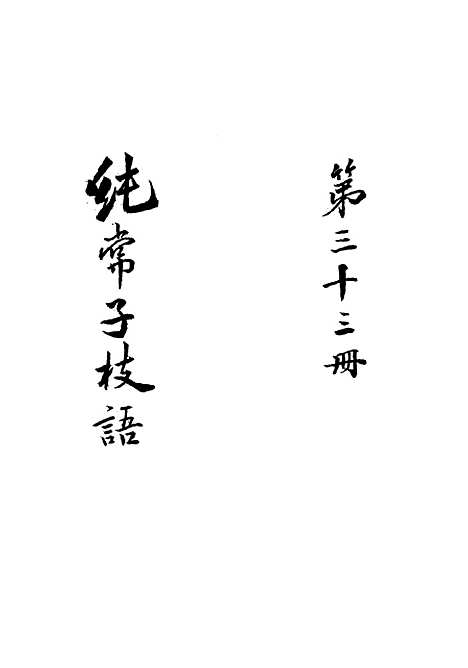 第三十三冊
純常子枝語